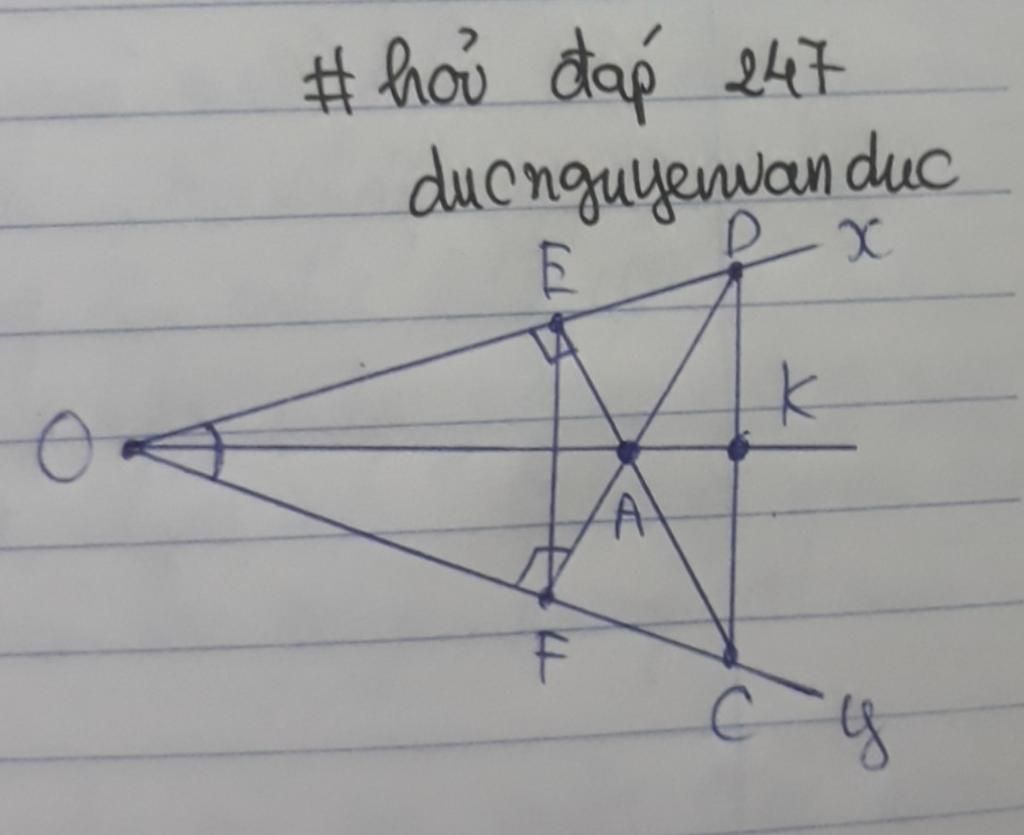 # hỏi đáp 247
ducnguyenvanduc
E D x
K
O
A
F
C y